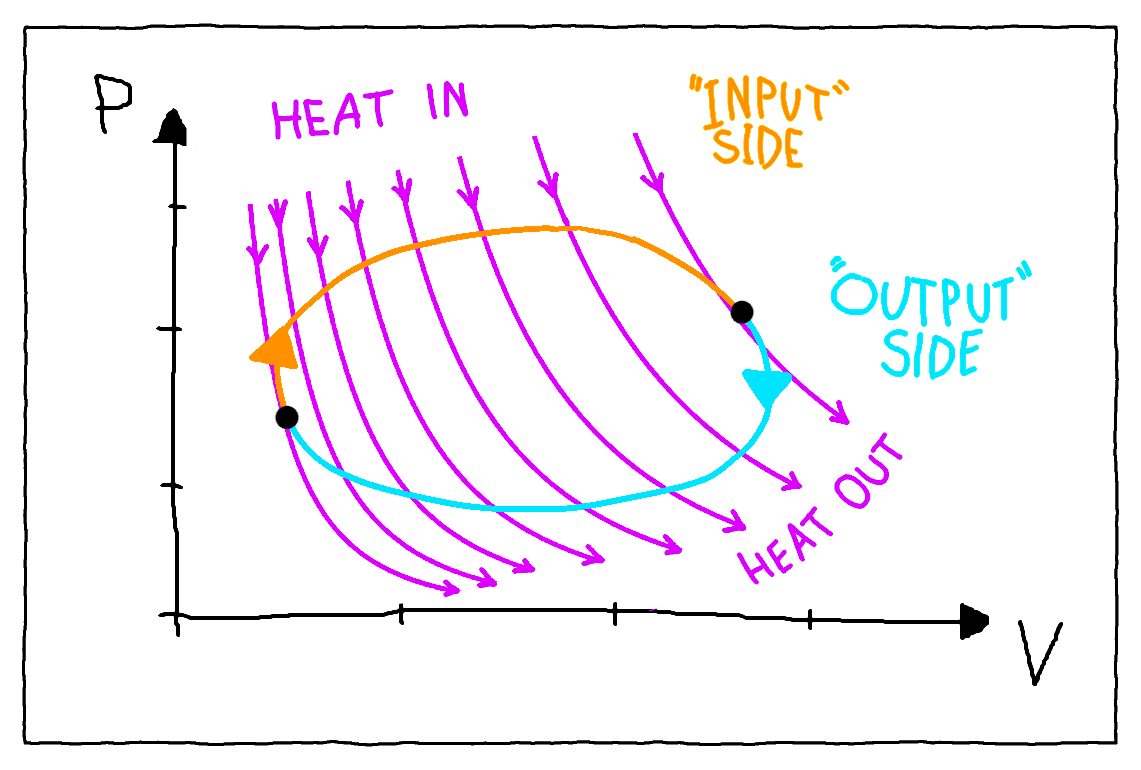 P
HEAT IN
"INPUT"
SIDE
"OUTPUT"
SIDE
HEAT OUT
V